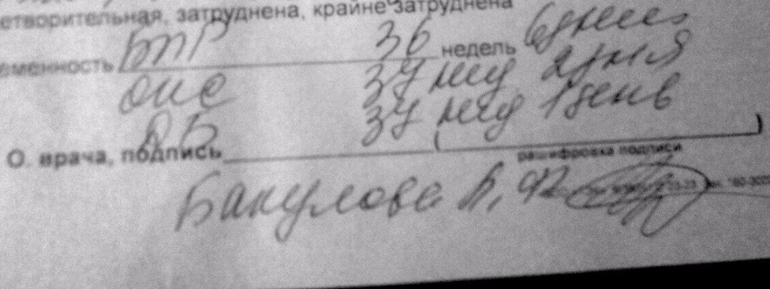 етворительная, затруднена, крайне затруднена
еменность БПР 36 недель 6 дней
34 нед 2 дня
ДБ 34 нед 1 день
О. врача, подпись (
)
расшифровка подписи
Бакулова В,